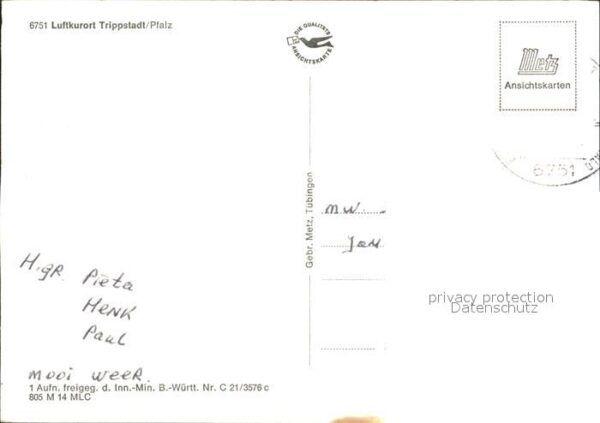 6751 Luftkurort Trippstadt/Pfalz
DIE QUALITÄTS
ANSICHTSKARTE
Metz
Ansichtskarten
6751
Gebr. Metz, Tübingen
MW.
Jan
H.gr. Pieta
HENK
Paul
mooi weer.
privacy protection
Datenschutz
1 Aufn. freigeg. d. Inn.-Min. B.-Württ. Nr. C 21/3576 c
805 M 14 MLC